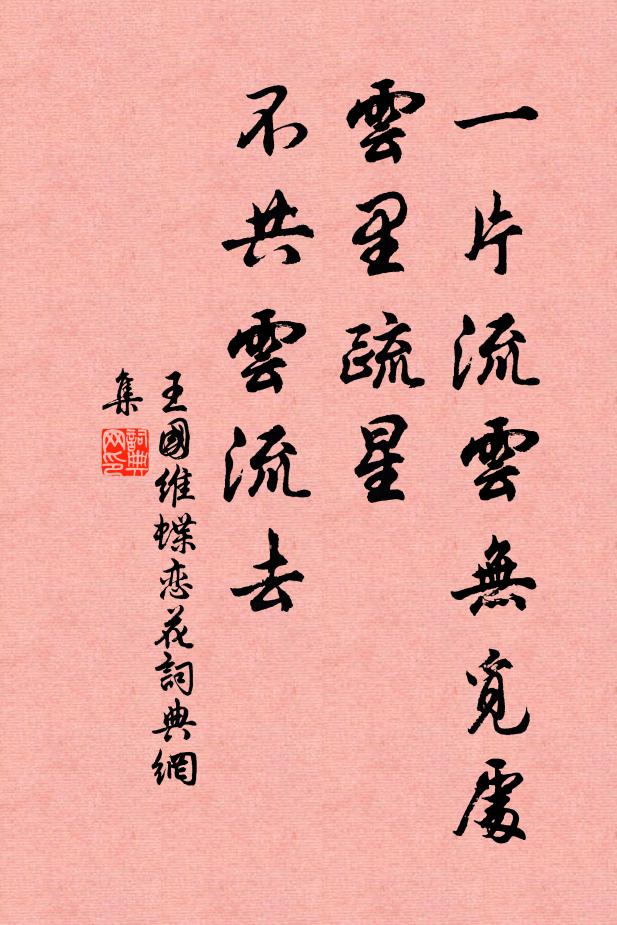 一片流雲無覓處
雲里疏星
不共雲流去
王國維蝶恋花詞典網
集
詞典
网印